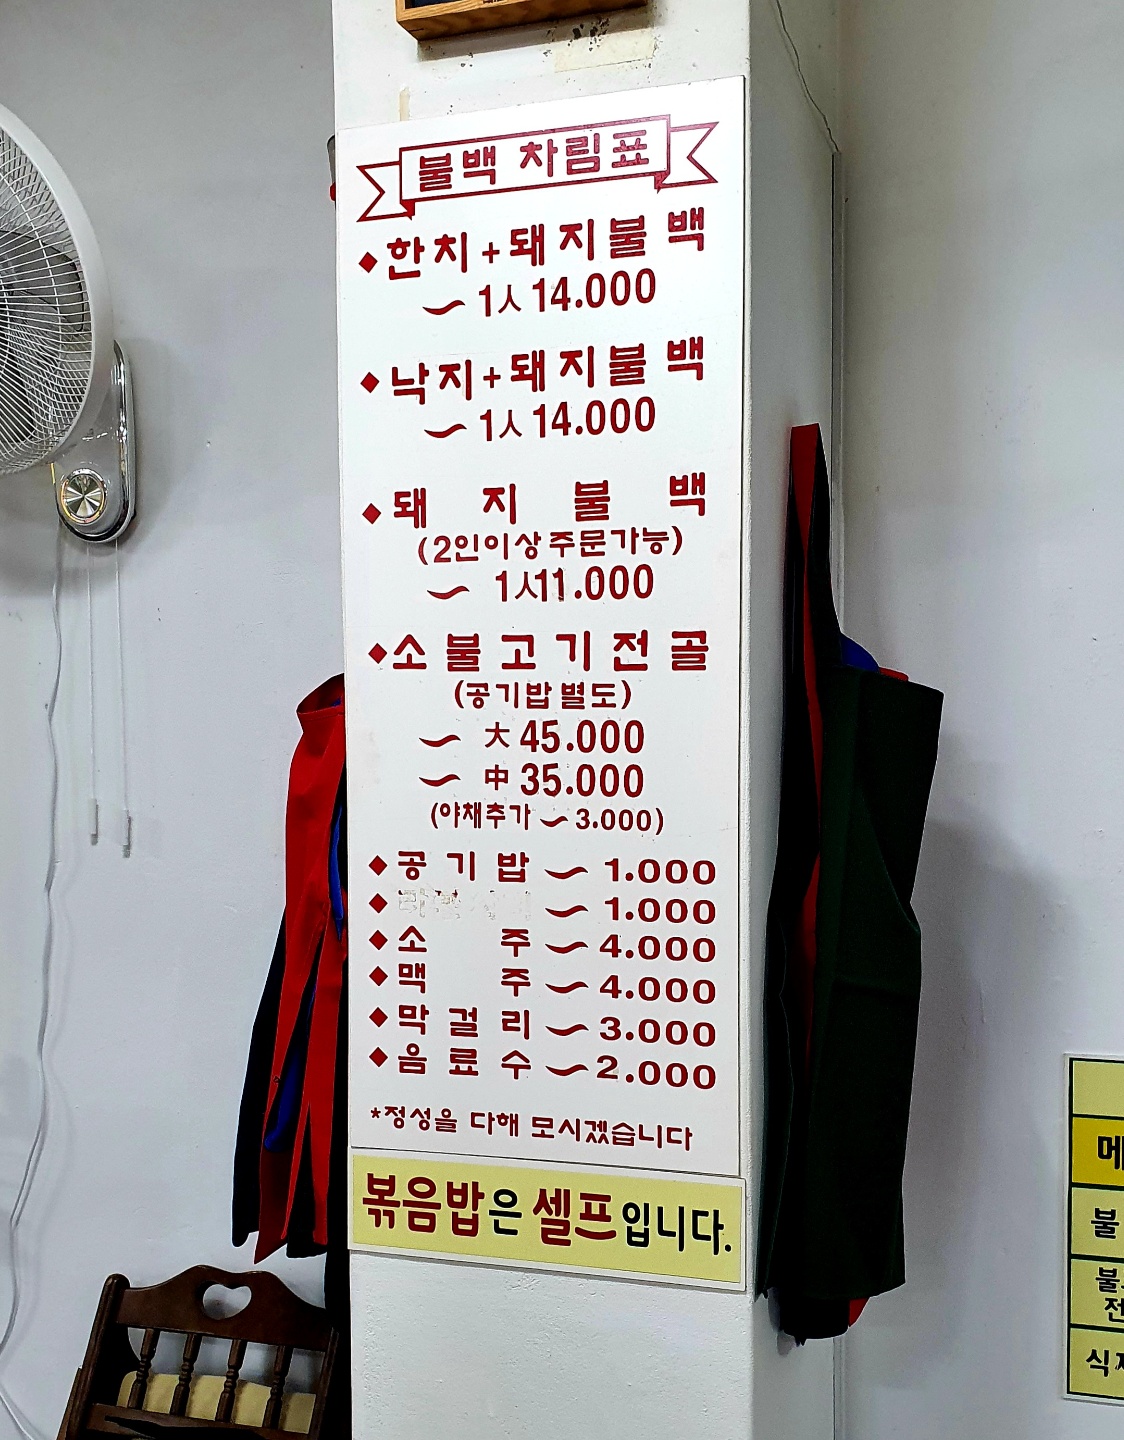 불백 차림표
◆한치+돼지불백
~ 1人 14.000
◆낙지+돼지불백
~ 1人 14.000
◆돼지불백
(2인이상주문가능)
~ 1人11.000
◆소불고기전골
(공기밥별도)
~ 大 45.000
~ 中 35.000
(야채추가 ~ 3.000)
◆공기밥 ~ 1.000
◆ ~ 1.000
◆소주 ~ 4.000
◆맥주 ~ 4.000
◆막걸리 ~ 3.000
◆음료수 ~ 2.000
*정성을 다해 모시겠습니다
볶음밥은 셀프입니다.
메
불
불
전
식